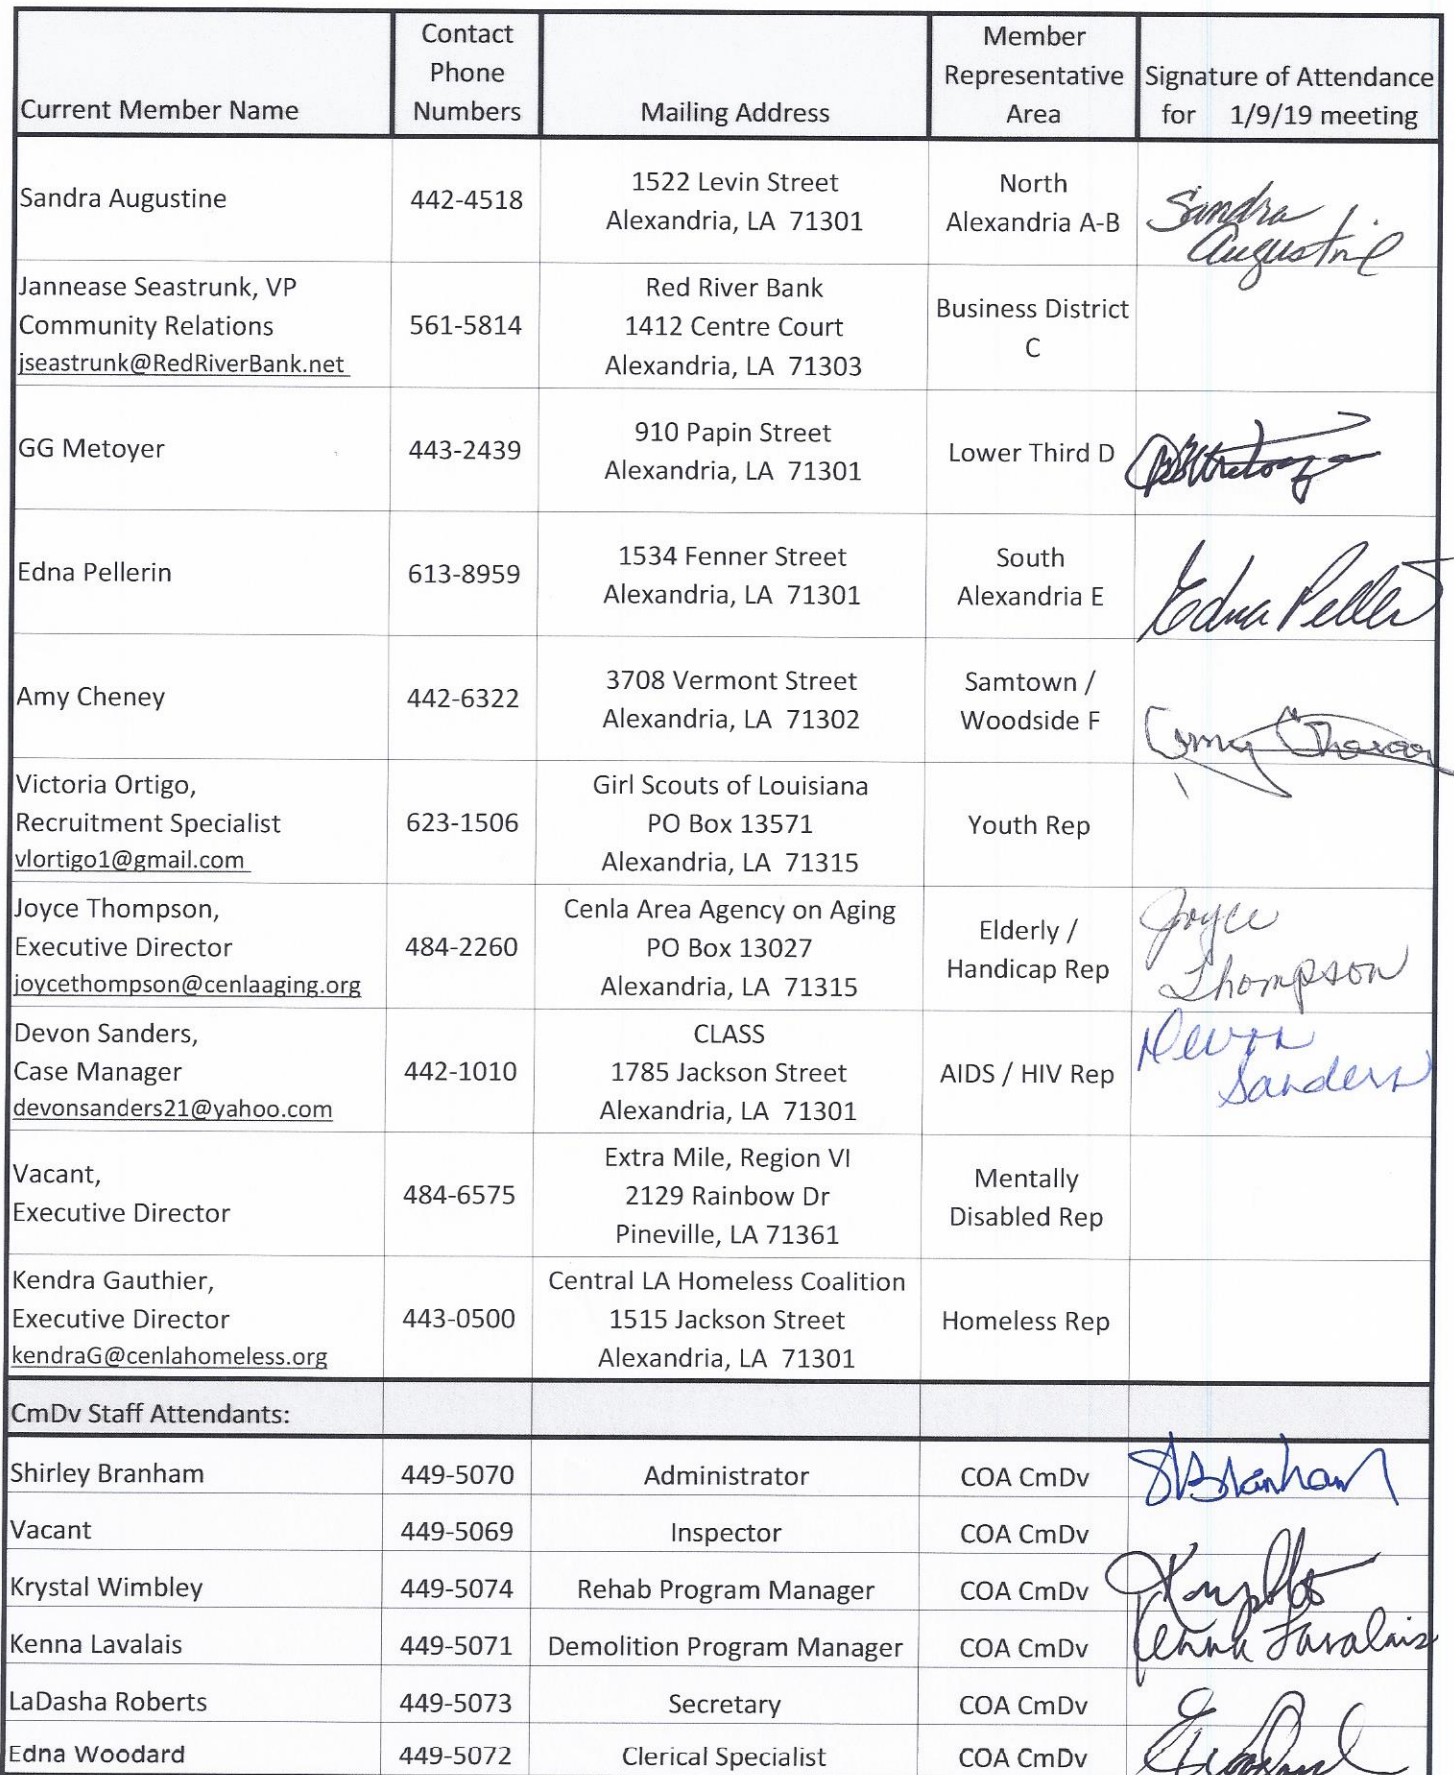 Current Member Name
Contact
Phone
Numbers
Mailing Address
Member
Representative
Area
Signature of Attendance
for 1/9/19 meeting
Sandra Augustine
442-4518
1522 Levin Street
Alexandria, LA 71301
North
Alexandria A-B
Sandra
Augustine
Jannease Seastrunk, VP
Community Relations
jseastrunk@RedRiverBank.net
561-5814
Red River Bank
1412 Centre Court
Alexandria, LA 71303
Business District
C
GG Metoyer
443-2439
910 Papin Street
Alexandria, LA 71301
Lower Third D
Edna Pellerin
613-8959
1534 Fenner Street
Alexandria, LA 71301
South
Alexandria E
Edna Peller
Amy Cheney
442-6322
3708 Vermont Street
Alexandria, LA 71302
Samtown /
Woodside F
Amy
Victoria Ortigo,
Recruitment Specialist
vlortigo1@gmail.com
623-1506
Girl Scouts of Louisiana
PO Box 13571
Alexandria, LA 71315
Youth Rep
Joyce Thompson,
Executive Director
joycethompson@cenlaaging.org
484-2260
Cenla Area Agency on Aging
PO Box 13027
Alexandria, LA 71315
Elderly /
Handicap Rep
Joyce
Thompson
Devon Sanders,
Case Manager
devonsanders21@yahoo.com
442-1010
CLASS
1785 Jackson Street
Alexandria, LA 71301
AIDS / HIV Rep
Devon
Sanders
Vacant,
Executive Director
484-6575
Extra Mile, Region VI
2129 Rainbow Dr
Pineville, LA 71361
Mentally
Disabled Rep
Kendra Gauthier,
Executive Director
kendraG@cenlahomeless.org
443-0500
Central LA Homeless Coalition
1515 Jackson Street
Alexandria, LA 71301
Homeless Rep
CmDv Staff Attendants:
Shirley Branham
449-5070
Administrator
COA CmDv
SBranham
Vacant
449-5069
Inspector
COA CmDv
Krystal Wimbley
449-5074
Rehab Program Manager
COA CmDv
Kenna Lavalais
449-5071
Demolition Program Manager
COA CmDv
Kenna Lavalais
LaDasha Roberts
449-5073
Secretary
COA CmDv
Edna Woodard
449-5072
Clerical Specialist
COA CmDv